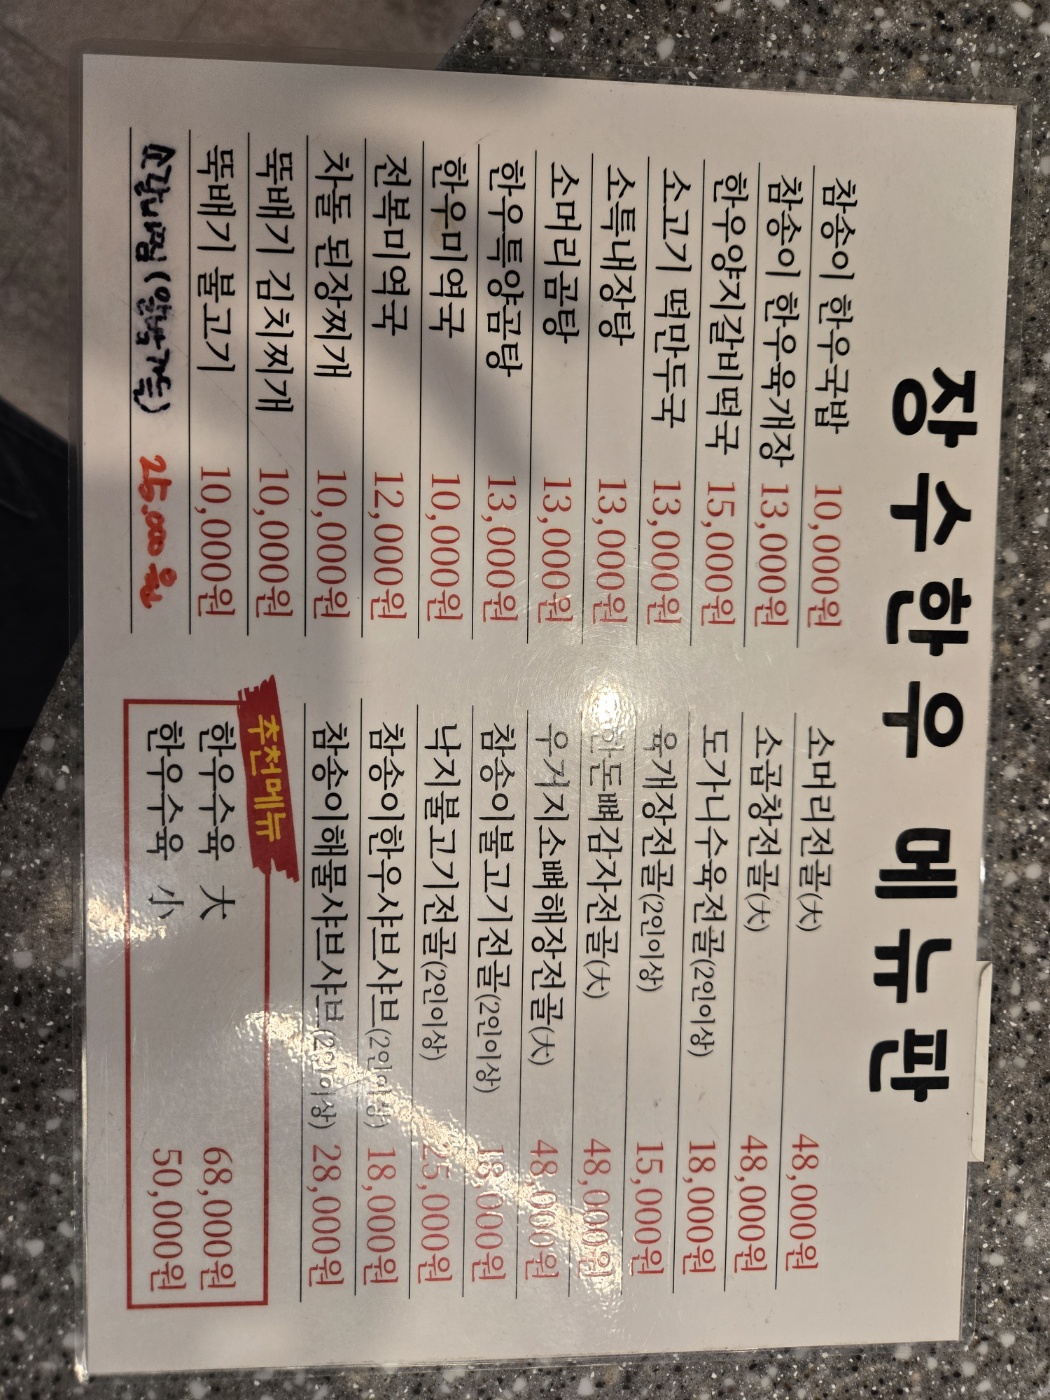 장수한우 메뉴판
참송이 한우국밥 10,000원
참송이 한우육개장 13,000원
한우양지갈비떡국 15,000원
소고기 떡만두국 13,000원
소특내장탕 13,000원
소머리곰탕 13,000원
한우특양곰탕 13,000원
한우미역국 10,000원
전복미역국 12,000원
차돌 된장찌개 10,000원
뚝배기 김치찌개 10,000원
뚝배기 불고기 10,000원
25,000원
소머리전골(大) 48,000원
소곱창전골(大) 48,000원
도가니수육전골(2인이상) 18,000원
육개장전골(2인이상) 15,000원
한돈뼈감자전골(大) 48,000원
우거지소뼈해장전골(大) 48,000원
참송이불고기전골(2인이상) 18,000원
낙지불고기전골(2인이상) 25,000원
참송이한우샤브샤브(2인이상) 18,000원
참송이해물샤브샤브(2인이상) 28,000원
추천메뉴
한우수육 大 68,000원
한우수육 小 50,000원